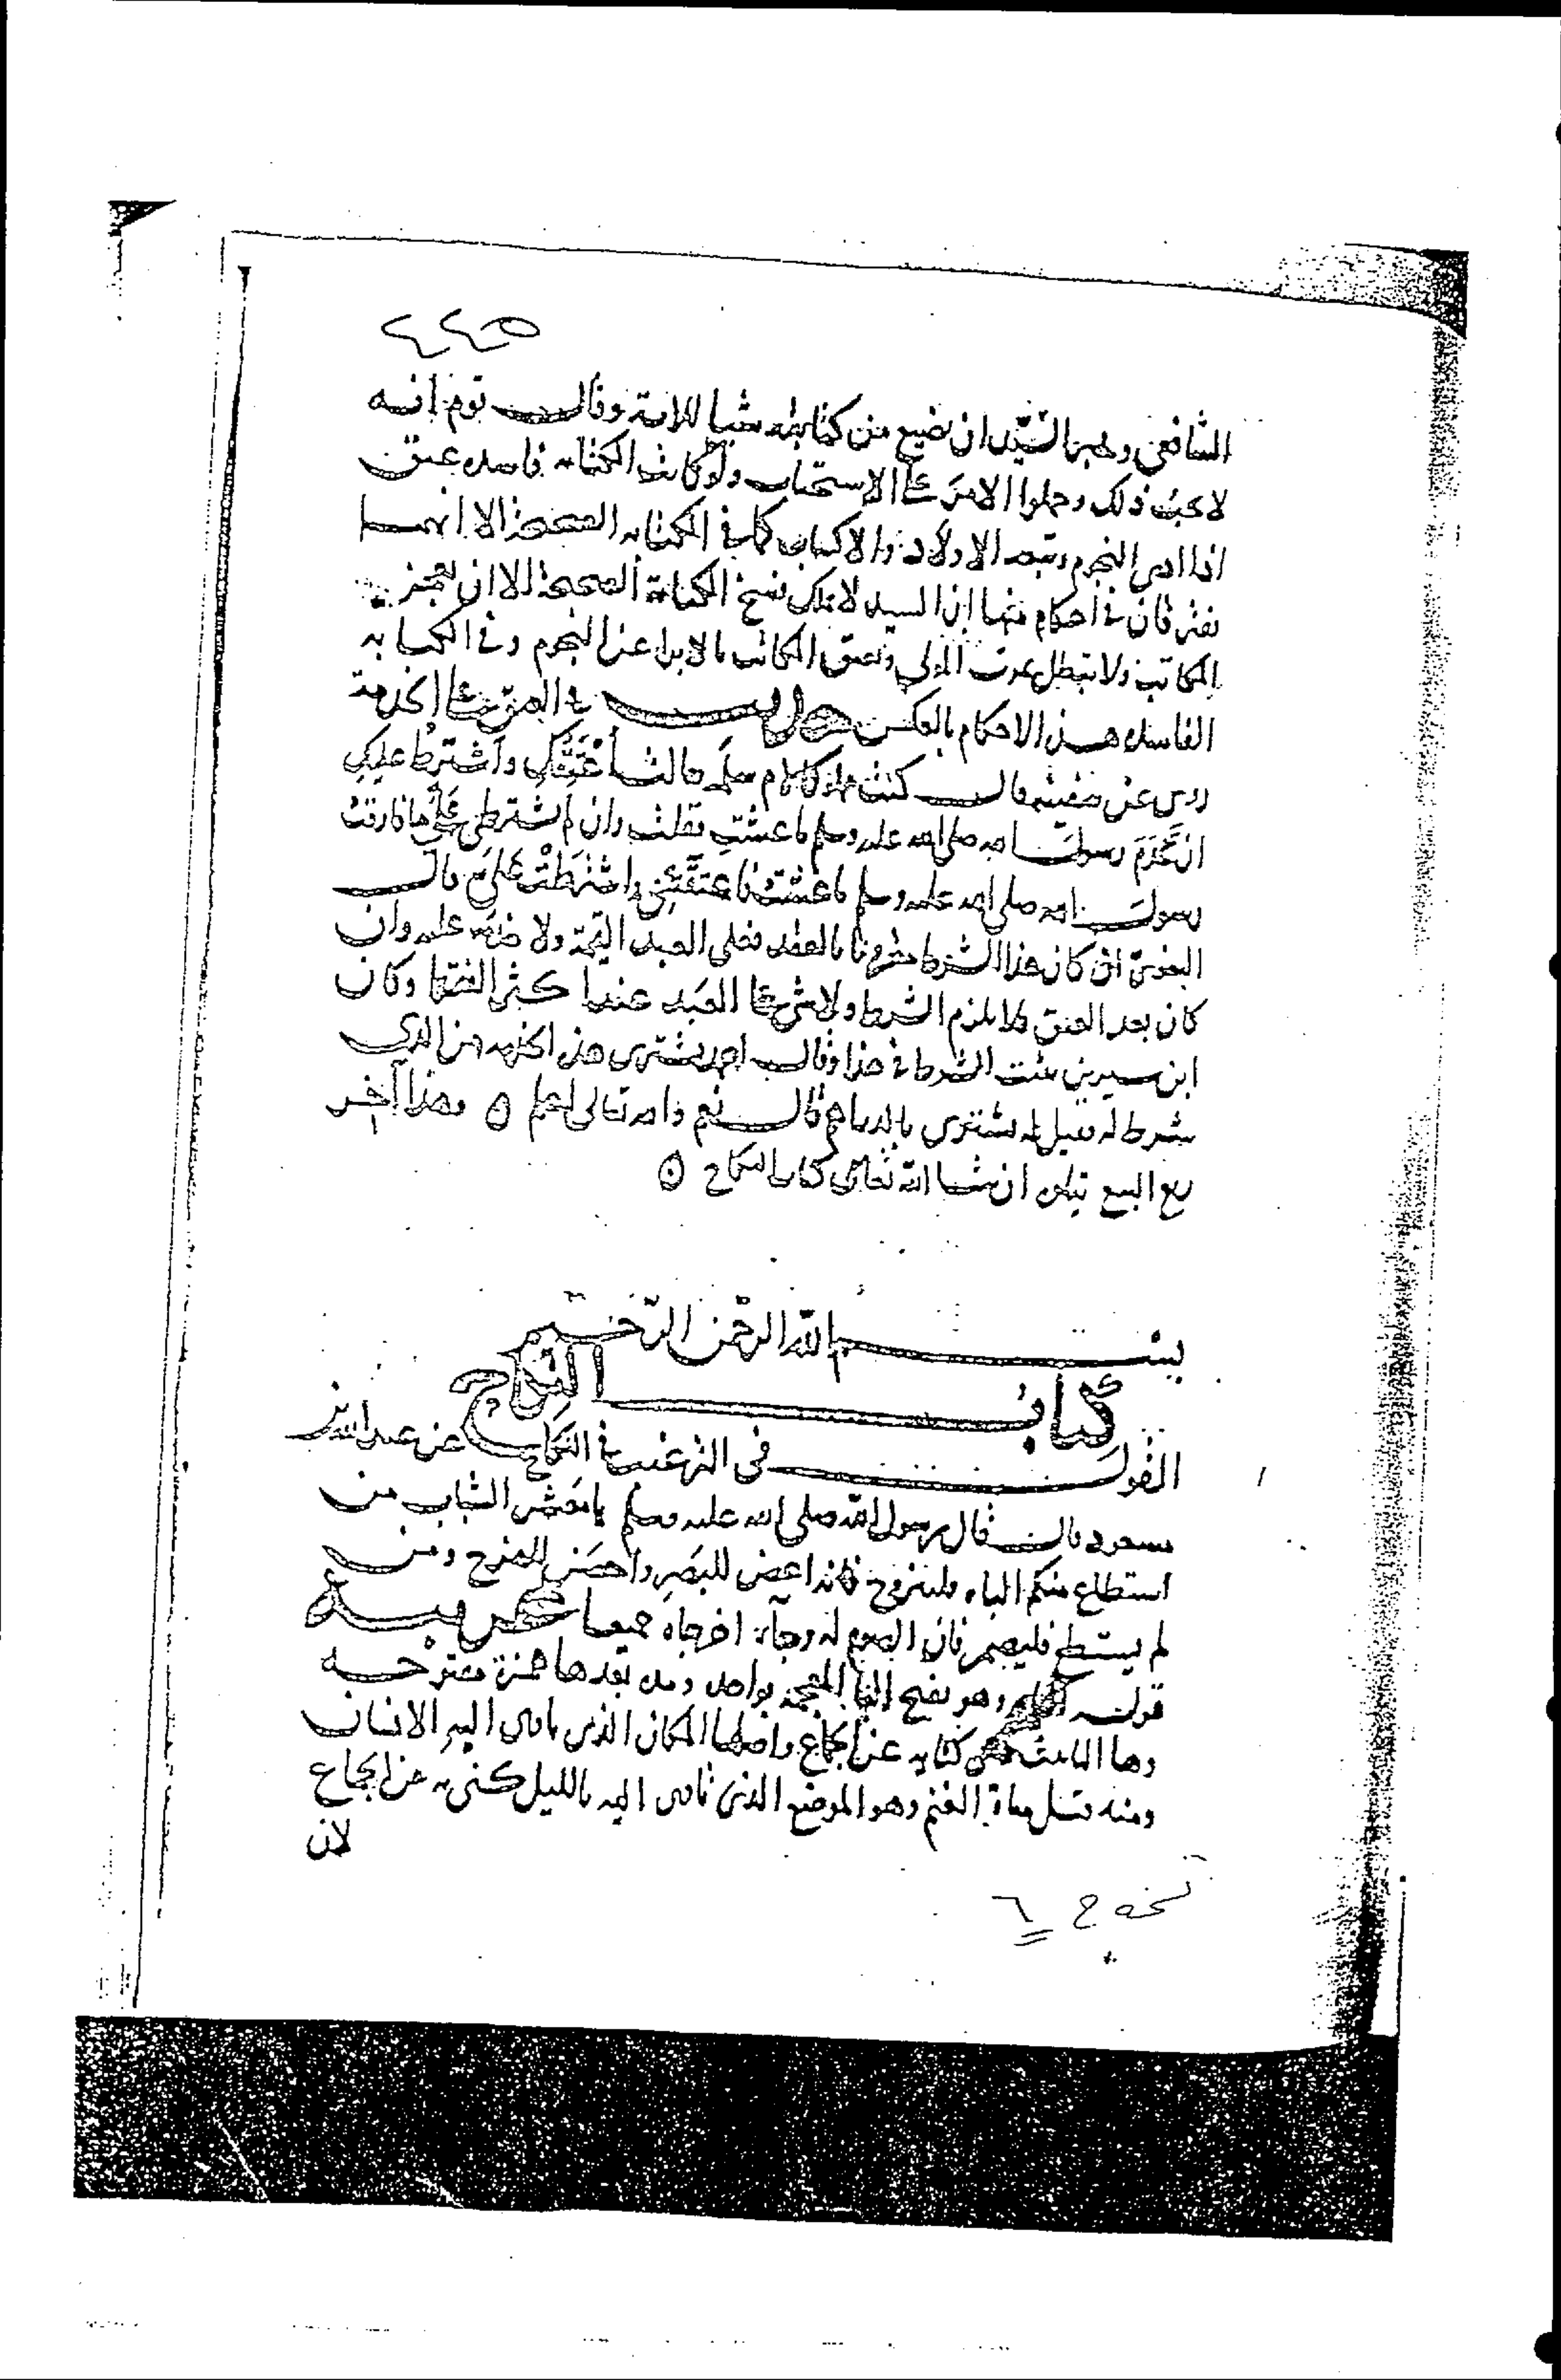 ٢٢٥
الشافعي ويجبر السيد ان يضع من كتابته شيا للاية وقال قوم انه
لا يجب ذلك وحملوا الامر على الاستحباب ولو كانت الكتابه فاسده عتق
اذا ادى النجوم وتبعه الاولاد والاكساب كما في الكتابه الصحيحة الا انهما
يفترقان في احكام منها ان السيد لا يملك فسخ الكتابة الصحيحة الا ان يعجز
المكاتب ولا تبطل بموت المولى ويعتق المكاتب بالابرا عن النجوم وفي الكتابه
الفاسده هذه الاحكام بالعكس في العتق على الخدمة
روي عن سفينه قال كنت مملوكا لام سلمه فقالت أعتقك وأشترط عليك
ان تخدم رسول الله صلى الله عليه وسلم ما عشت فقلت وان لم تشترطي علي ما فارقت
رسول الله صلى الله عليه وسلم ما عشت فاعتقتني واشترطت علي قال
البغوي ان كان هذا الشرط مقرونا بالعقد فعلى العبد القيمة ولا خدمة عليه وان
كان بعد العتق فلا يلزم الشرط ولا شي على العبد عند اكثر الفقها وكان
ابن سيرين يثبت الشرط في هذا وقال احمد يشتري هذه الخدمه من الذي
شرط له قيل له يشتري بالدراهم قال نعم والله تعالى اعلم ۝ وهذا آخر
ربع البيع يتلوه ان شا الله تعالى كتاب النكاح ۝
بسم الله الرحمن الرحيم
كتاب النكاح
القول في الترغيب في النكاح عن عبد الله بن
مسعود قال قال رسول الله صلى الله عليه وسلم يا معشر الشباب من
استطاع منكم الباه فليتزوج فانه اغض للبصر واحصن للفرج ومن
لم يستطع فليصم فان الصوم له وجاء اخرجاه جميعا
قوله وهو بفتح البا المعجمة بواحده ومد بعدها همزة مفتوحه
وها التانيث كنايه عن الجماع واصلها المكان الذي ياوي اليه الانسان
ومنه قيل مباة الغنم وهو الموضع الذي تاوي اليه بالليل كني به عن الجماع
لان
نسخه ج ٦